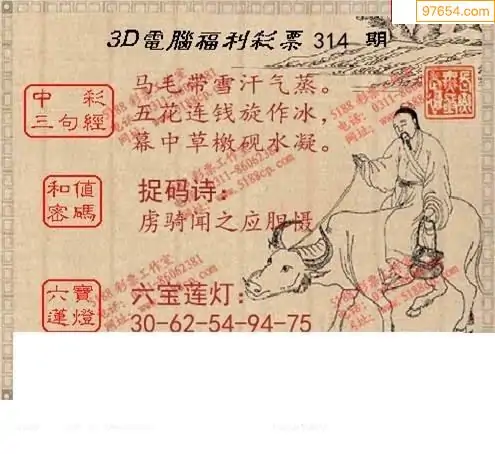 97654.com
3D電腦福利彩票 314 期
中彩
三句經
马毛带雪汗气蒸。
五花连钱旋作冰，
幕中草檄砚水凝。
和值
密碼
捉码诗：
虏骑闻之应胆慑
六寶
蓮燈
六宝莲灯：
30-62-54-94-75
5188 彩票工作室
电话：0311-86062381
网址：www.5188cp.com